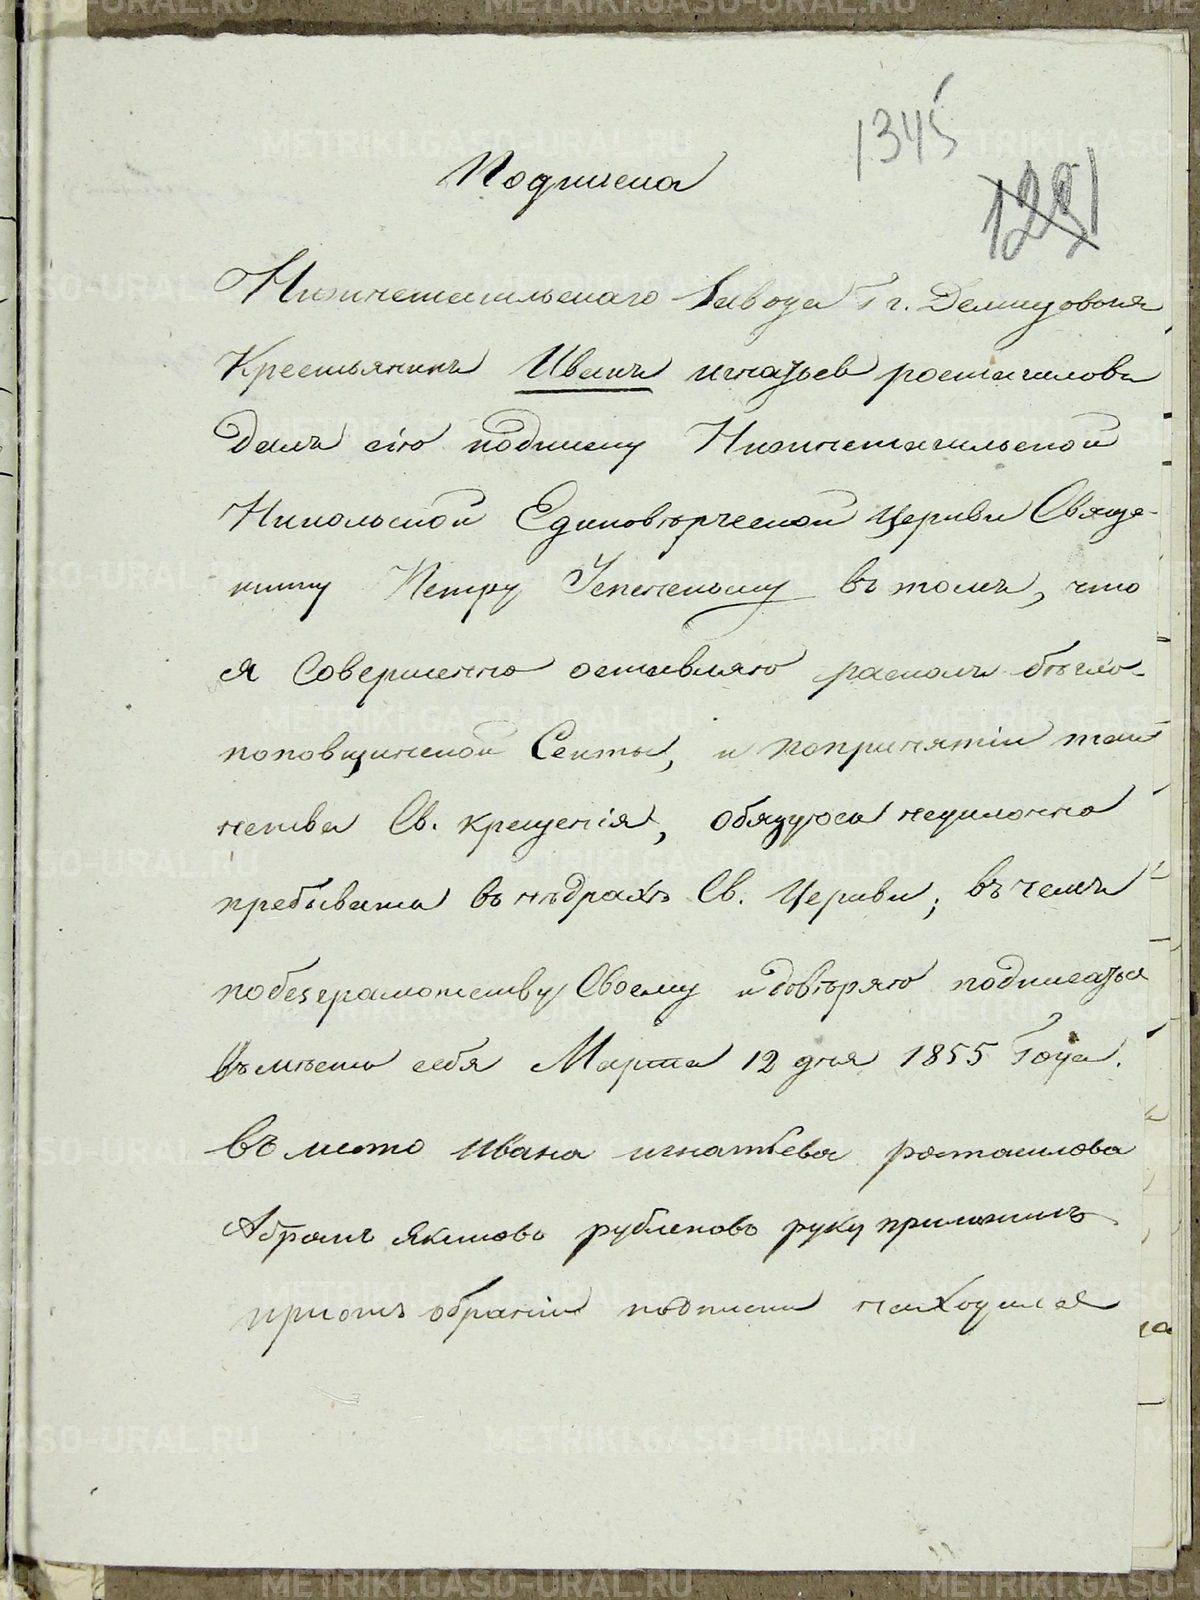 1345
1291
Подписка
Нижнетагильскаго Завода Гг. Демидовыхъ
Крестьянинъ Иванъ игнатьев ростагиловъ
Далъ сію подписку Нижнетагильской
Никольской Единовѣрческой Церкви Свяще-
ннику Петру в томъ, что
я Совершенно оставляю расколъ бѣгло-
поповщинской Секты, и попринятіи таи
нства Св. крещенія, обязуюсь неуклонно
пребывать въ нѣдрахъ Св. Церкви; въ чемъ
по безграмотству Своему и довѣряю подписаться
въмѣсто себя Марта 12 дня 1855 Года.
въ место Ивана игнатьева ростагилова
Абрамъ Якимовъ рубленовъ руку приложилъ
приотъобраніи подписки находился
METRIKI.GASO-URAL.RU